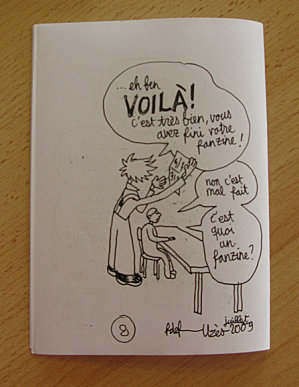 ...eh ben
VOILÀ!
c'est très bien, vous
avez fini votre
fanzine!
non c'est
mal fait
c'est
quoi
un
fanzine?
8
Uzès juillet 2009